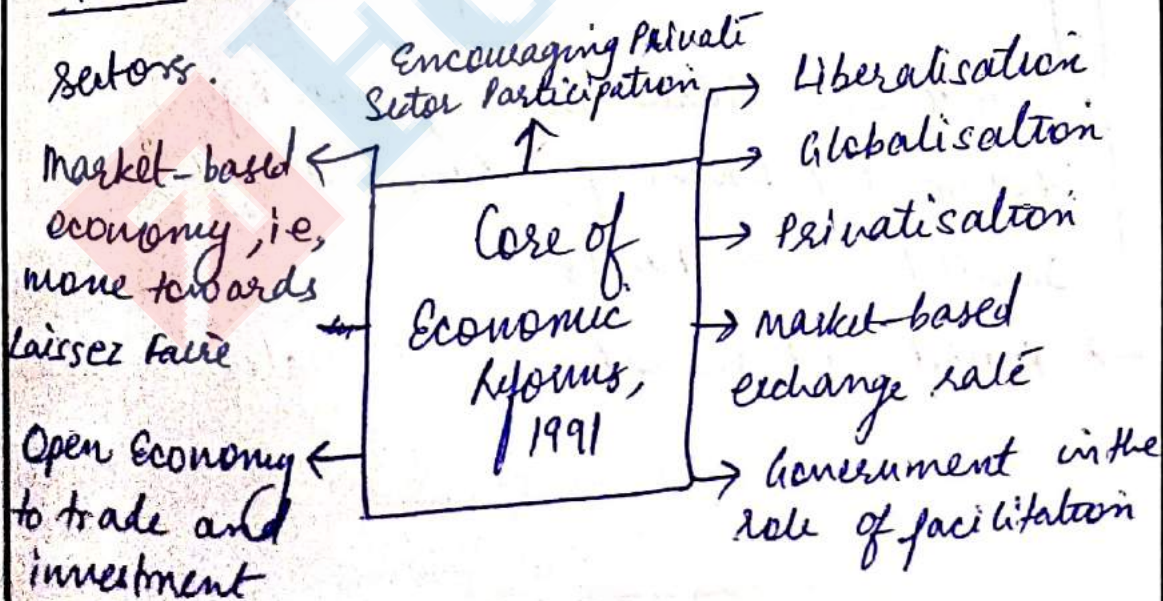 sectors.
Encouraging Private
Sector Participation
Market-based
economy, i.e,
move towards
Laissez Faire
Open Economy
to trade and
investment
Core of
Economic
Reforms,
1991
Liberalisation
Globalisation
Privatisation
market-based
exchange rate
Government in the
role of facilitation